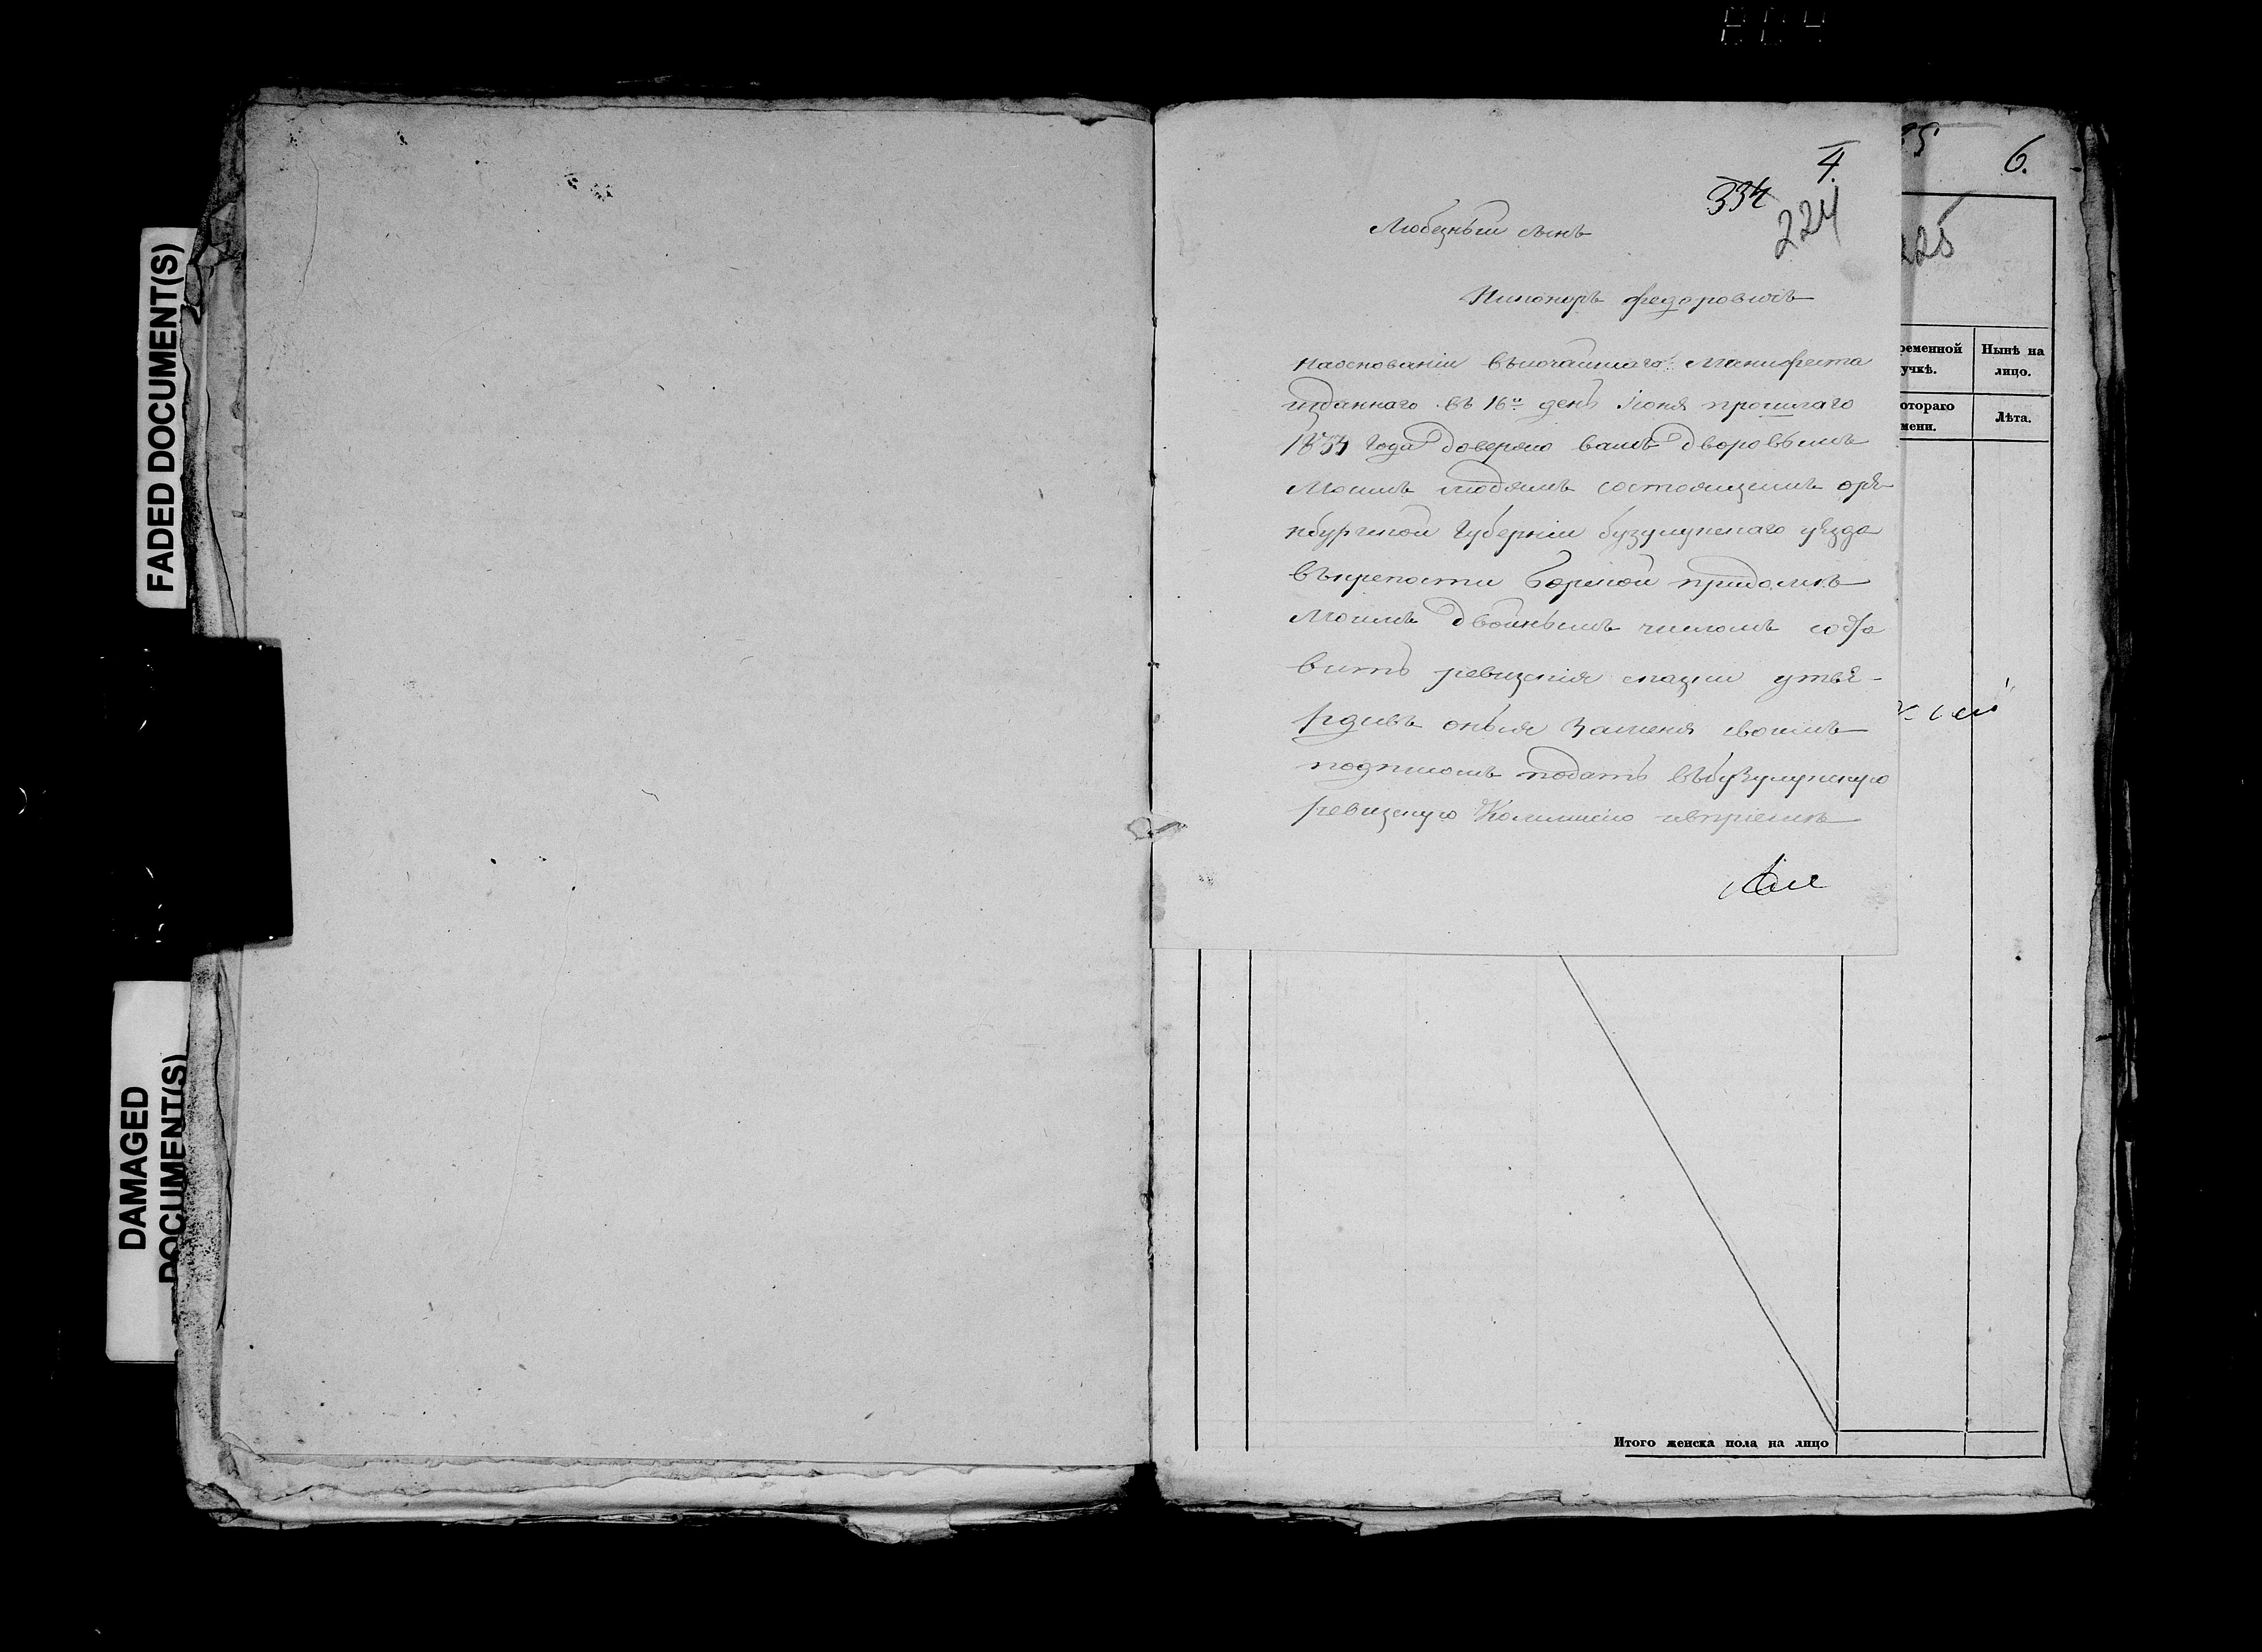 FADED DOCUMENT(S)
DAMAGED
DOCUMENT(S)
804
4.
334
224
6.
Любезный сынъ
Никоноръ федоровичь
наоснованіи высочайшаго Манифеста
изданнаго въ 16й день Іюня прошлаго
1833 года доверяю вамъ дворовымъ
Моимъ людямъ состоящимъ оре
нбургской Губерніи бузулуцкаго уезда
въкрепости борской придомъ
Моимъ двойнымъ числомъ соста
вить ревизскія сказки утве-
рдивъ оныя Заменя своимъ
подписомъ подать въбузулуцкую
ревизскую Коммисію
ременной
учкѣ.
Нынѣ на
лицо.
отораго
мени.
Лѣта.
Итого женска пола на лицо